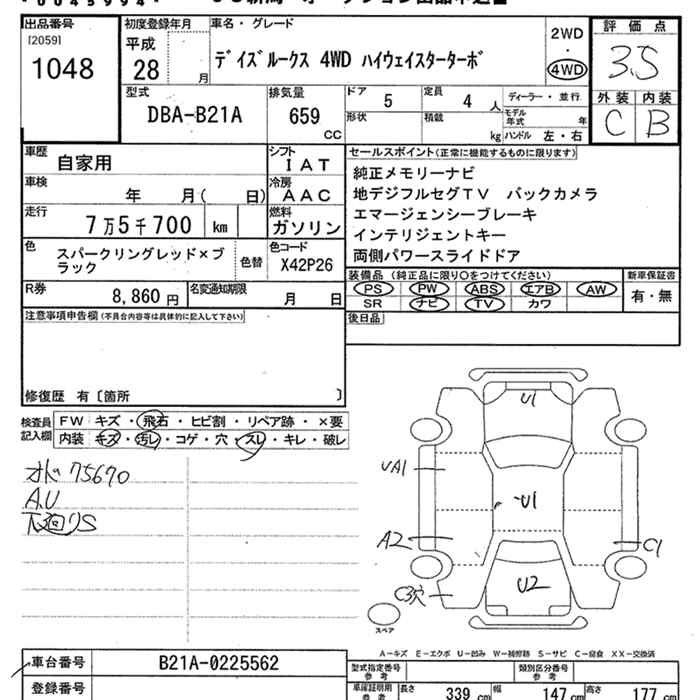 出品番号
[2059]
1048
初度登録年月
平成
28 月
車名・グレード
デイズルークス 4WD ハイウェイスターターボ
2WD
・
4WD
評価点
3.5
外装 内装
C B
型式
DBA-B21A
排気量
659
CC
ドア 5
定員 4 人
形状
積載 kg
ディーラー・並行
モデル年式 年
ハンドル 左・右
車歴
自家用
シフト
IAT
車検
年 月( 日)
冷房
AAC
走行
7万5千700 km
燃料
ガソリン
色
スパークリングレッド×ブ
ラック
色替
色コード
X42P26
R券
8,860 円
名変通知期限
月 日
セールスポイント(正常に機能するものに限ります)
純正メモリーナビ
地デジフルセグTV バックカメラ
エマージェンシーブレーキ
インテリジェントキー
両側パワースライドドア
装備品 (純正品に限り○をつけてください)
PS PW ABS エアB AW
SR ナビ TV カワ
新車保証書
有・無
後日品
注意事項申告欄(不具合内容等は具体的に記入して下さい)
修復歴 有〔箇所 〕
検査員
記入欄
FW キズ・飛石・ヒビ割・リペア跡・×要
内装 キズ・汚レ・コゲ・穴・スレ・キレ・破レ
75670
A.U
下廻りS
U1
UA1
U1
A2
C1
C3穴
U2
スペア
A-キズ E-エクボ U-凹み W-補修跡 S-サビ C-腐食 XX-交換済
車台番号
B21A-0225562
登録番号
型式指定番号
参考
類別区分番号
参考
車庫証明用
参考
長さ 339 cm
幅 147 cm
高さ 177 cm